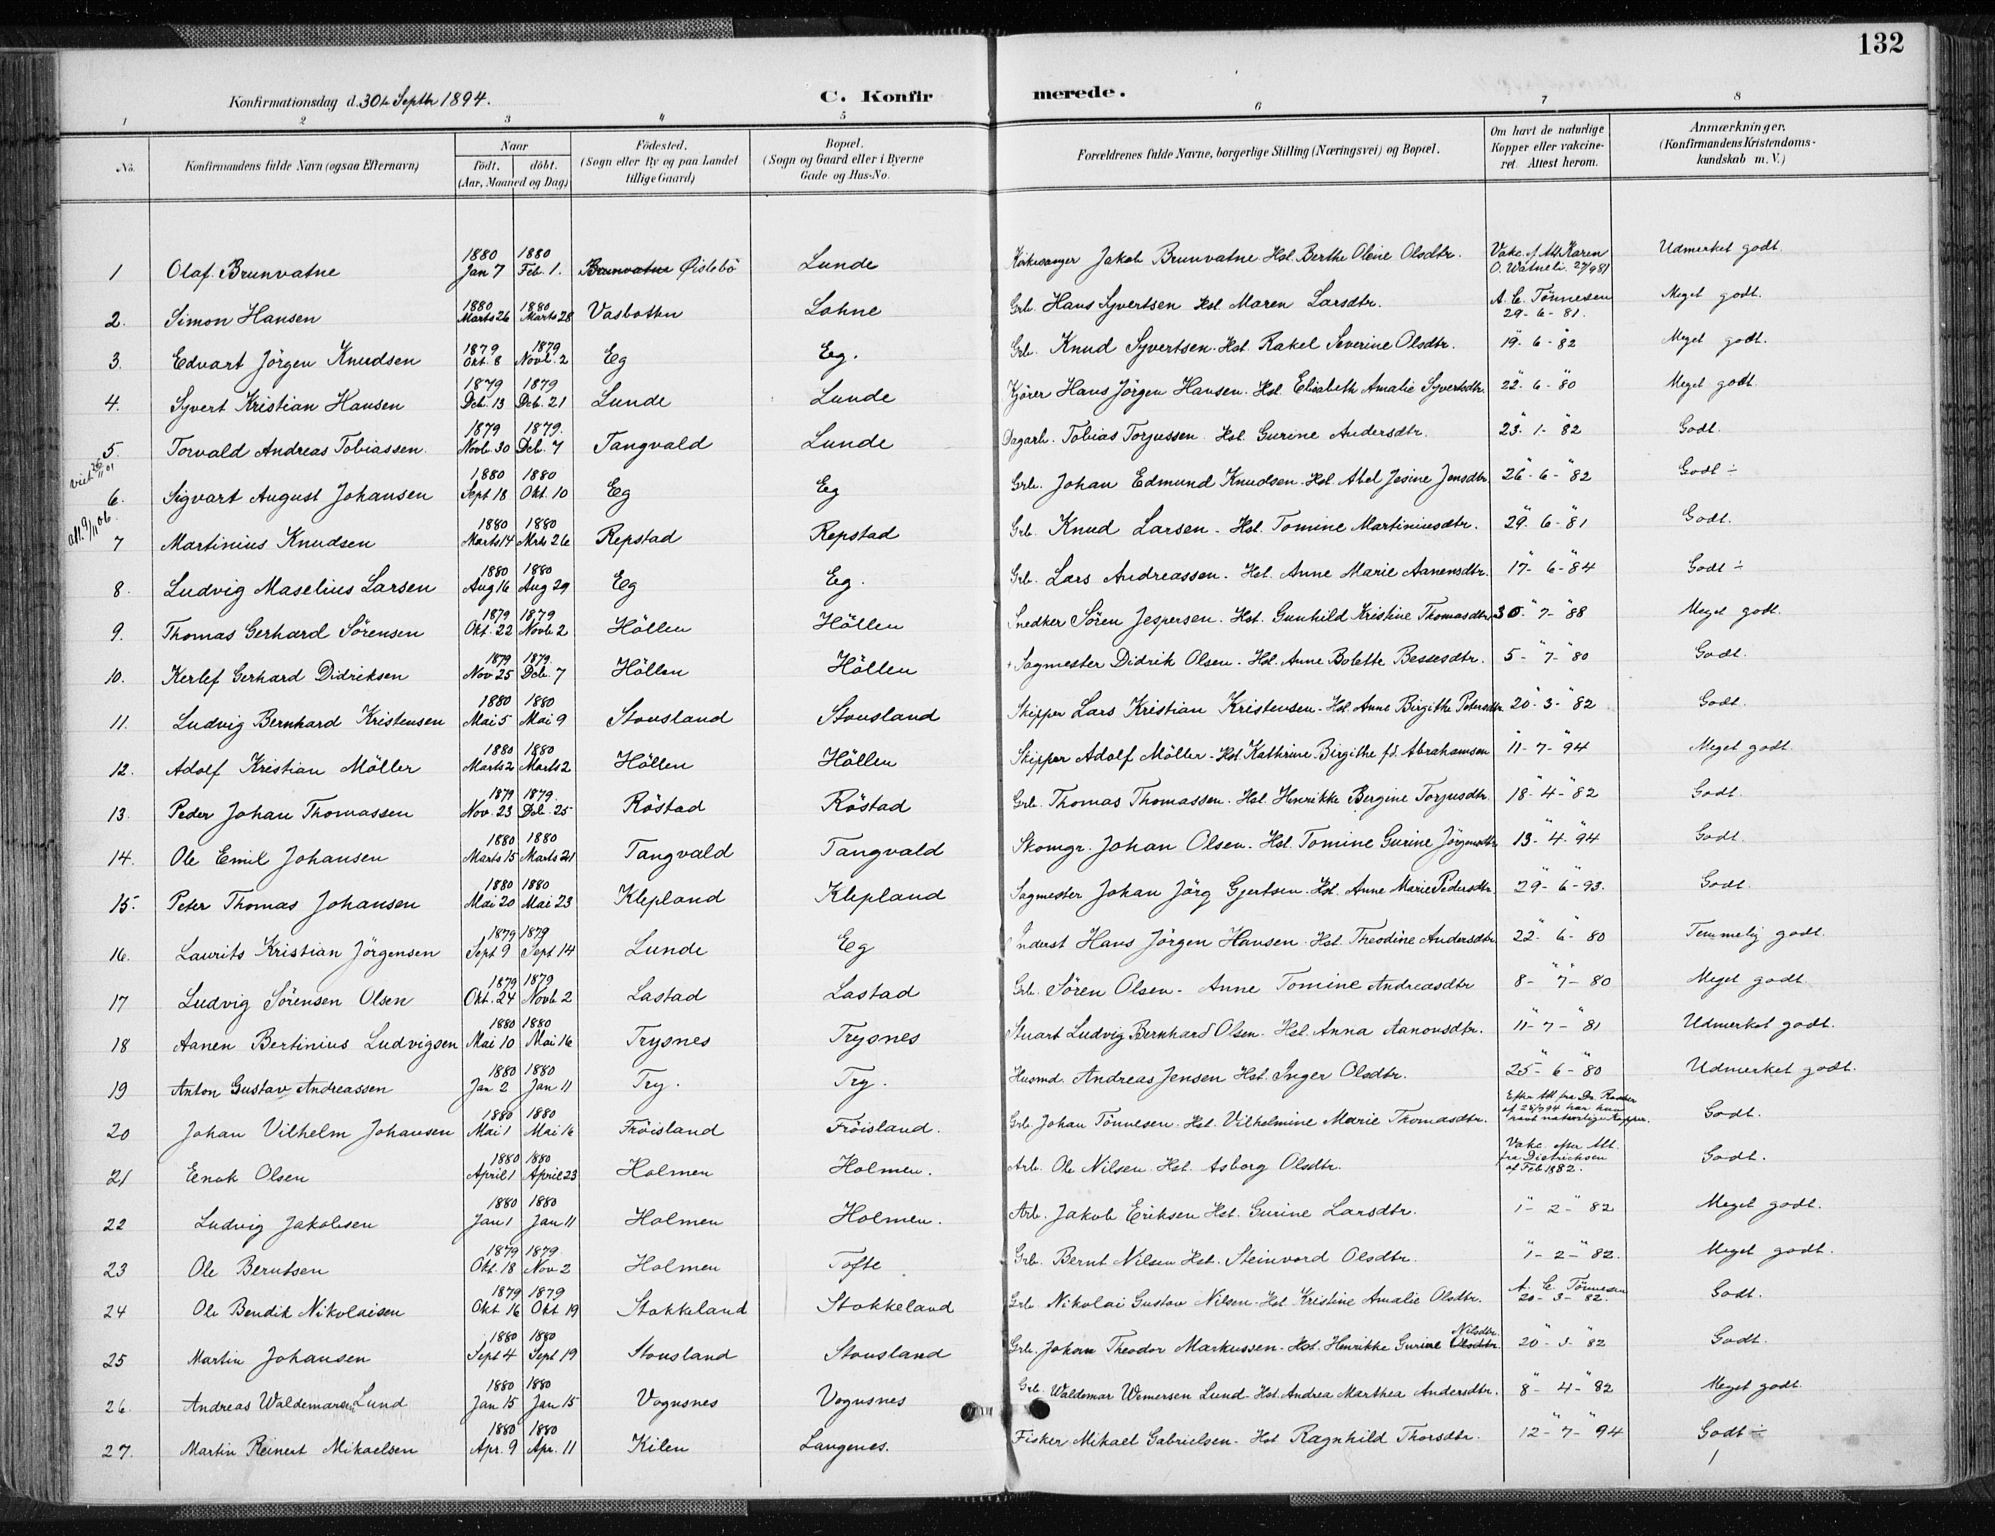 132
Konfirmationsdag d. 30te Septbr 1894. C. Konfirmerede.
1 2 3 4 5 6 7 8
No. Konfirmandens fulde Navn (ogsaa Efternavn) Naar födt, döbt. (Aar, Maaned og Dag) Födested. (Sogn eller By og paa Landet tillige Gaard) Bopæl. (Sogn og Gaard eller i Byerne Gade og Hus-No. Forældrenes fulde Navne, borgerlige Stilling (Næringsvei) og Bopæl. Om havt de naturlige Kopper eller vakcineret. Attest herom. Anmærkninger. (Konfirmandens Kristendomskundskab m. V.)
1 Olaf Brunvatne 1880 Jan 7 1880 Feb. 1. Brunvatne Øislebö Lunde Kirkesanger Jakob Brunvatne Hst. Berthe Olene Olsdtr. Vakc. f. Att. Karen O. Watneli 27/9 81 Udmerket godt.
2. Simon Hansen 1880 Marts 26 1880 Marts 28 Vasbotten Lohne Grb. Hans Syvertsen Hst. Maren Larsdtr. A. C. Tönnesen 29-6-81. Meget godt.
3. Edvart Jörgen Knudsen 1879 Okt. 8 1879 Novb. 2 Eg Eg. Grb. Knud Syvertsen. Hst. Rakel Severine Olsdtr. 19"-6-"82 Meget godt.
4. Syvert Kristian Hansen 1879 Dcb. 13 1879 Dcb. 21 Lunde Lunde Kjörer Hans Jörgen Hansen. Hst. Elisabeth Amalie Syvertsdtr. 22"-6-"80 Meget godt
5. Torvald Andreas Tobiassen. 1879 Novb. 30 1879. Dcb. 7 Tangvald Lunde Dagarb. Tobias Torjussen. Hst. Gurine Andersdtr. 23"-1-"82 Godt.
6. Sigvart August Johansen 1880 Sept 18 1880 Okt. 10 Eg Eg Grb. Johan Edmund Knudsen. Hst. Abel Jesine Jensdtr 26"-6-"82 Godt ÷
att. 9/11 06.
7 Martinius Knudsen 1880 Marts 14 1880 Mrts 26 Repstad Repstad Grb. Knud Larsen. Hst. Tomine Martiniusdtr. 29"-6-"81 Godt.
8. Ludvig Maselius Larsen 1880 Aug 16 1880 Aug 29 Eg Eg. Grb. Lars Andreassen. Hst. Anne Marie Aanensdtr. 17"-6-"84 Godt ÷
9. Thomas Gerhard Sörensen 1879 Okt. 22 1879 Novb. 2 Höllen Höllen Snedker Sören Jespersen. Hst. Gunhild Kristine Thomasdtr. 30-"7-"88 Meget godt.
10. Kerlef Gerhard Didriksen 1879 Nov 25 1879. Dcb. 7 Höllen Höllen Sagmester Didrik Olsen. Hst. Anne Bolette Bessesdtr. 5-"7-"80 Godt.
11. Ludvig Bernhard Kristensen 1880 Mai 5 1880 Mai 9 Stousland Stousland Skipper Lars Kristian Kristensen. Hst. Anne Birgithe Petersdtr 20"-3-"82 Godt.
12. Adolf Kristian Möller 1880 Marts 2 1880 Marts 2 Höllen Höllen Skipper Adolf Möller. Hst. Kathrine Birgithe fd. Abrahamsen 11"-7-"94 Meget godt.
13. Peder Johan Thomassen 1879 Nov. 23 1879. Dcb. 25 Röstad Röstad Grb. Thomas Thomassen. Hst. Henrikke Bergine Torjusdtr. 18"-4-"82 Godt.
14. Ole Emil Johansen 1880 Marts 15 1880 Marts 21 Tangvald Tangvald Skomgr. Johan Olsen. Hst. Tomine Gurine Jörgensdtr 13-"4-"94 Godt.
15. Peter Thomas Johansen 1880 Mai 20 1880 Mai 23 Klepland Klepland Sagmester Johan Jörg Gjertsen. Hst. Anne Marie Pedersdtr. 29-"6-"93. Godt.
16. Laurits Kristian Jörgensen 1879 Sept 9 1879 Sept 14 Lunde Eg Inderst Hans Jörgen Hansen. Hst. Theodine Andersdtr. 22"-6-"80 Temmelig godt.
17 Ludvig Sörensen Olsen 1879 Okt. 24 1879 Novb. 2 Lastad Lastad Grb. Sören Olsen. Anne Tomine Andreasdtr 8-"7-"80 Meget godt.
18 Aanen Bertinius Ludvigsen 1880 Mai 10 1880 Mai 16 Trysnes Trysnes Stuart Ludvig Bernhard Olsen. Hst. Anna Aanonsdtr. 11"-7-"81 Udmerket godt.
19 Anton Gustav Andreassen 1880 Jan 2 1880 Jan 11 Try. Try. Husmd. Andreas Jensen Hst. Inger Olsdtr. 25"-6-"80 Udmerket godt.
20 Johan Vilhelm Johansen 1880 Mai 1 1880 Mai 16 Fröisland Fröisland. Grb. Johan Tönnesen. Hst. Vilhelmine Marie Thomasdtr. Efter Att. fra Dr. har han havt naturlige Kopper. Godt.
21 Enok Olsen 1880 April 1 1880 April 23 Holmen Holmen. Arb. Ole Nilsen. Hst. Asborg Olsdtr. Vakc. efter Att. fra Dietrichsen af Feb 1882. Godt.
22 Ludvig Jakobsen 1880 Jan 1 1880 Jan 11 Holmen Holmen. Arb. Jakob Eriksen Hst. Gurine Larsdtr. "1-2-"82 Meget godt.
23 Ole Berntsen 1879 Okt. 18 1879. Nov 2 Holmen Tofte Grb. Bernt Nilsen Hst. Steinvord Olsdtr. "1-2-"82. Meget godt.
24 Ole Bendik Nikolaisen 1879 Okt 16 1879 Okt 19 Stokkeland Stokkeland Grb. Nikolai Gustav Nilsen. Hst. Kristine Amalie Olsdtr. A. C. Tönnesen 20-3-82. Godt.
25 Martin Johansen 1880 Sept 4 1880 Sept 19 Stousland Stousland Grb. Johan Theodor Markussen. Hst. Henrikke Gurine Olsdtr. Nilsdtr. 20"-3-"82 Godt.
26. Andreas Waldemarsen Lund 1880 Jan 15 1880 Jan 15 Vognsnes Vognsnes Grb. Waldemar Wernersen Lund. Hst. Andrea Marthea Andersdtr. 8"-4-"82 Meget godt.
27. Martin Reinert Mikaelsen 1880 Apr. 9 1880 Apr. 11 Kilen Langenes. Fisker Mikael Gabrielsen. Hst. Ragnhild Thorsdtr. 12"-7-"94 Godt ÷